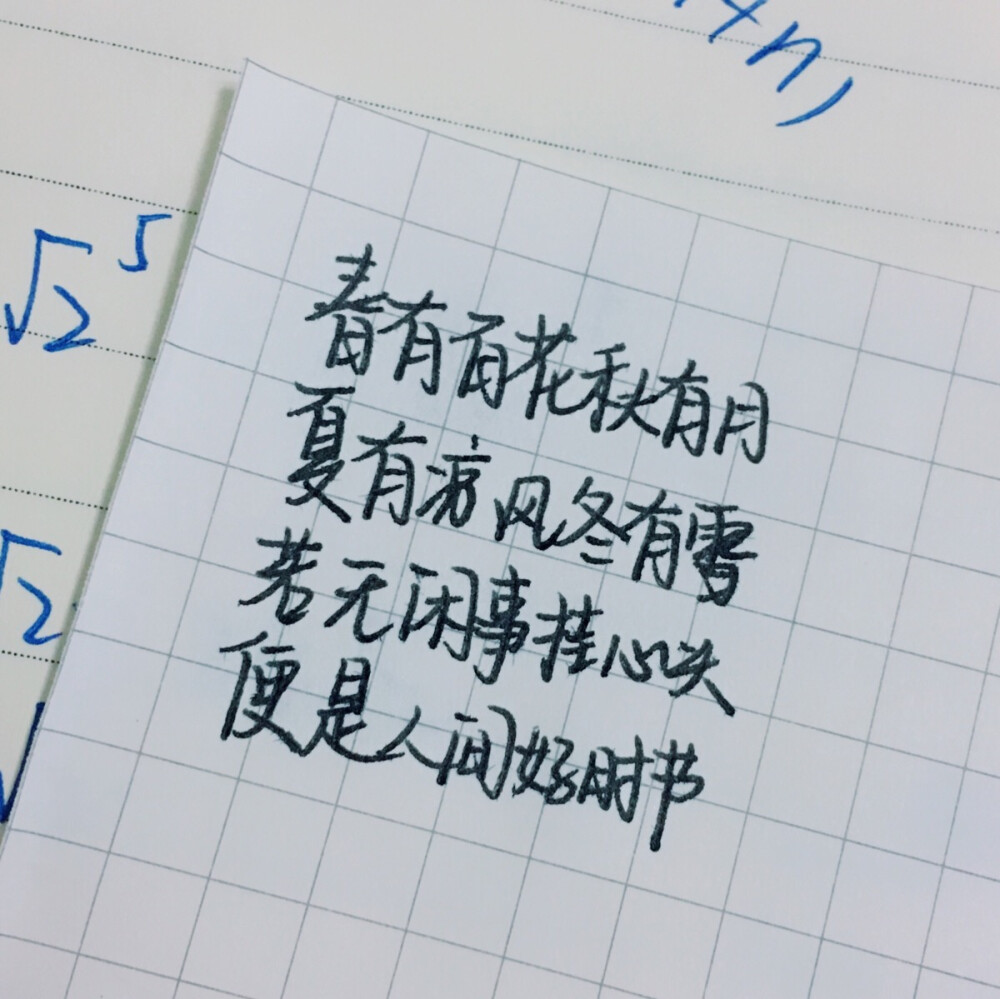 +n)
√2⁵
√2
春有百花秋有月
夏有凉风冬有雪
若无闲事挂心头
便是人间好时节